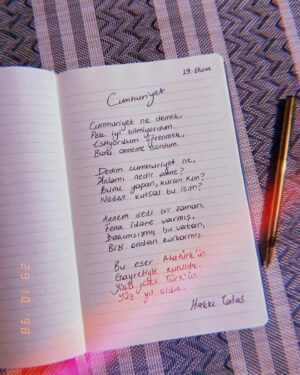 29. Ekim
Cumhuriyet
Cumhuriyet ne demek,
Pek iyi bilmiyordum.
İstiyordum öğrenmek,
Bunu anneme sordum.
Dedim cumhuriyet ne,
Anlamı nedir anne?
Bunu yapan, kuran kim?
Neden kutsal bu isim?
Annem dedi bir zaman,
Fena idare varmış.
Bakımsızmış bu vatan,
Bizi ondan kurtarmış.
Bu eser Atatürk'ün
Gayretiyle kuruldu.
Türk'ün
Yüz yıl oldu.
Hakkı Talas
29 10 '98